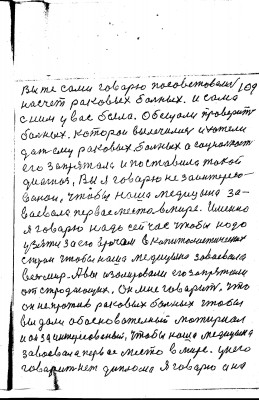 Вы те сами говарю посоветовали 109
насчет раковых болных. и сама
с ним у вас была. Обещали проверит
болных. Которои вылечилис и хотели
дат ему раковых болных а
его запрятали и поставили такой
диагноз, Вы я говарю не заинтересо-
ванои, чтобы наша медицына за-
ваевала первае место в мире. Именно
я говарю надо сейчас чтобы надо
взять за его в Капиталистических
стран чтобы наша медицына завоевала
весмир. А вы изолировали его запрятали
от страдающих, Он мне говарит, что
он не против раковых болных чтобы
вы дали обоснователный матириал
и он заинтересованый, чтобы наша медицына
завоевала первае место в мире. у него
говарит нет диплома я говарю а на